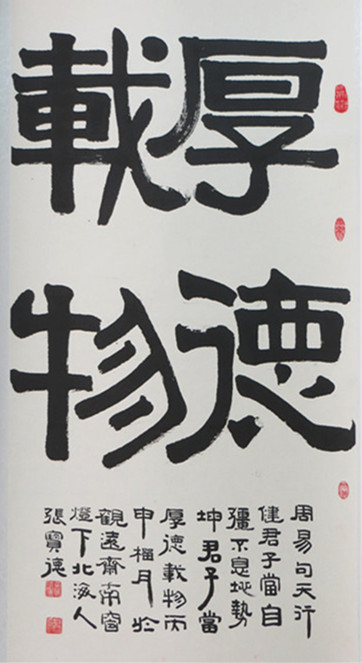 厚德
載物
周易句天行
健君子當自
彊不息地勢
坤君子當
厚德載物丙
申月於
觀遠齋南窗
燈下北海人
張寶德